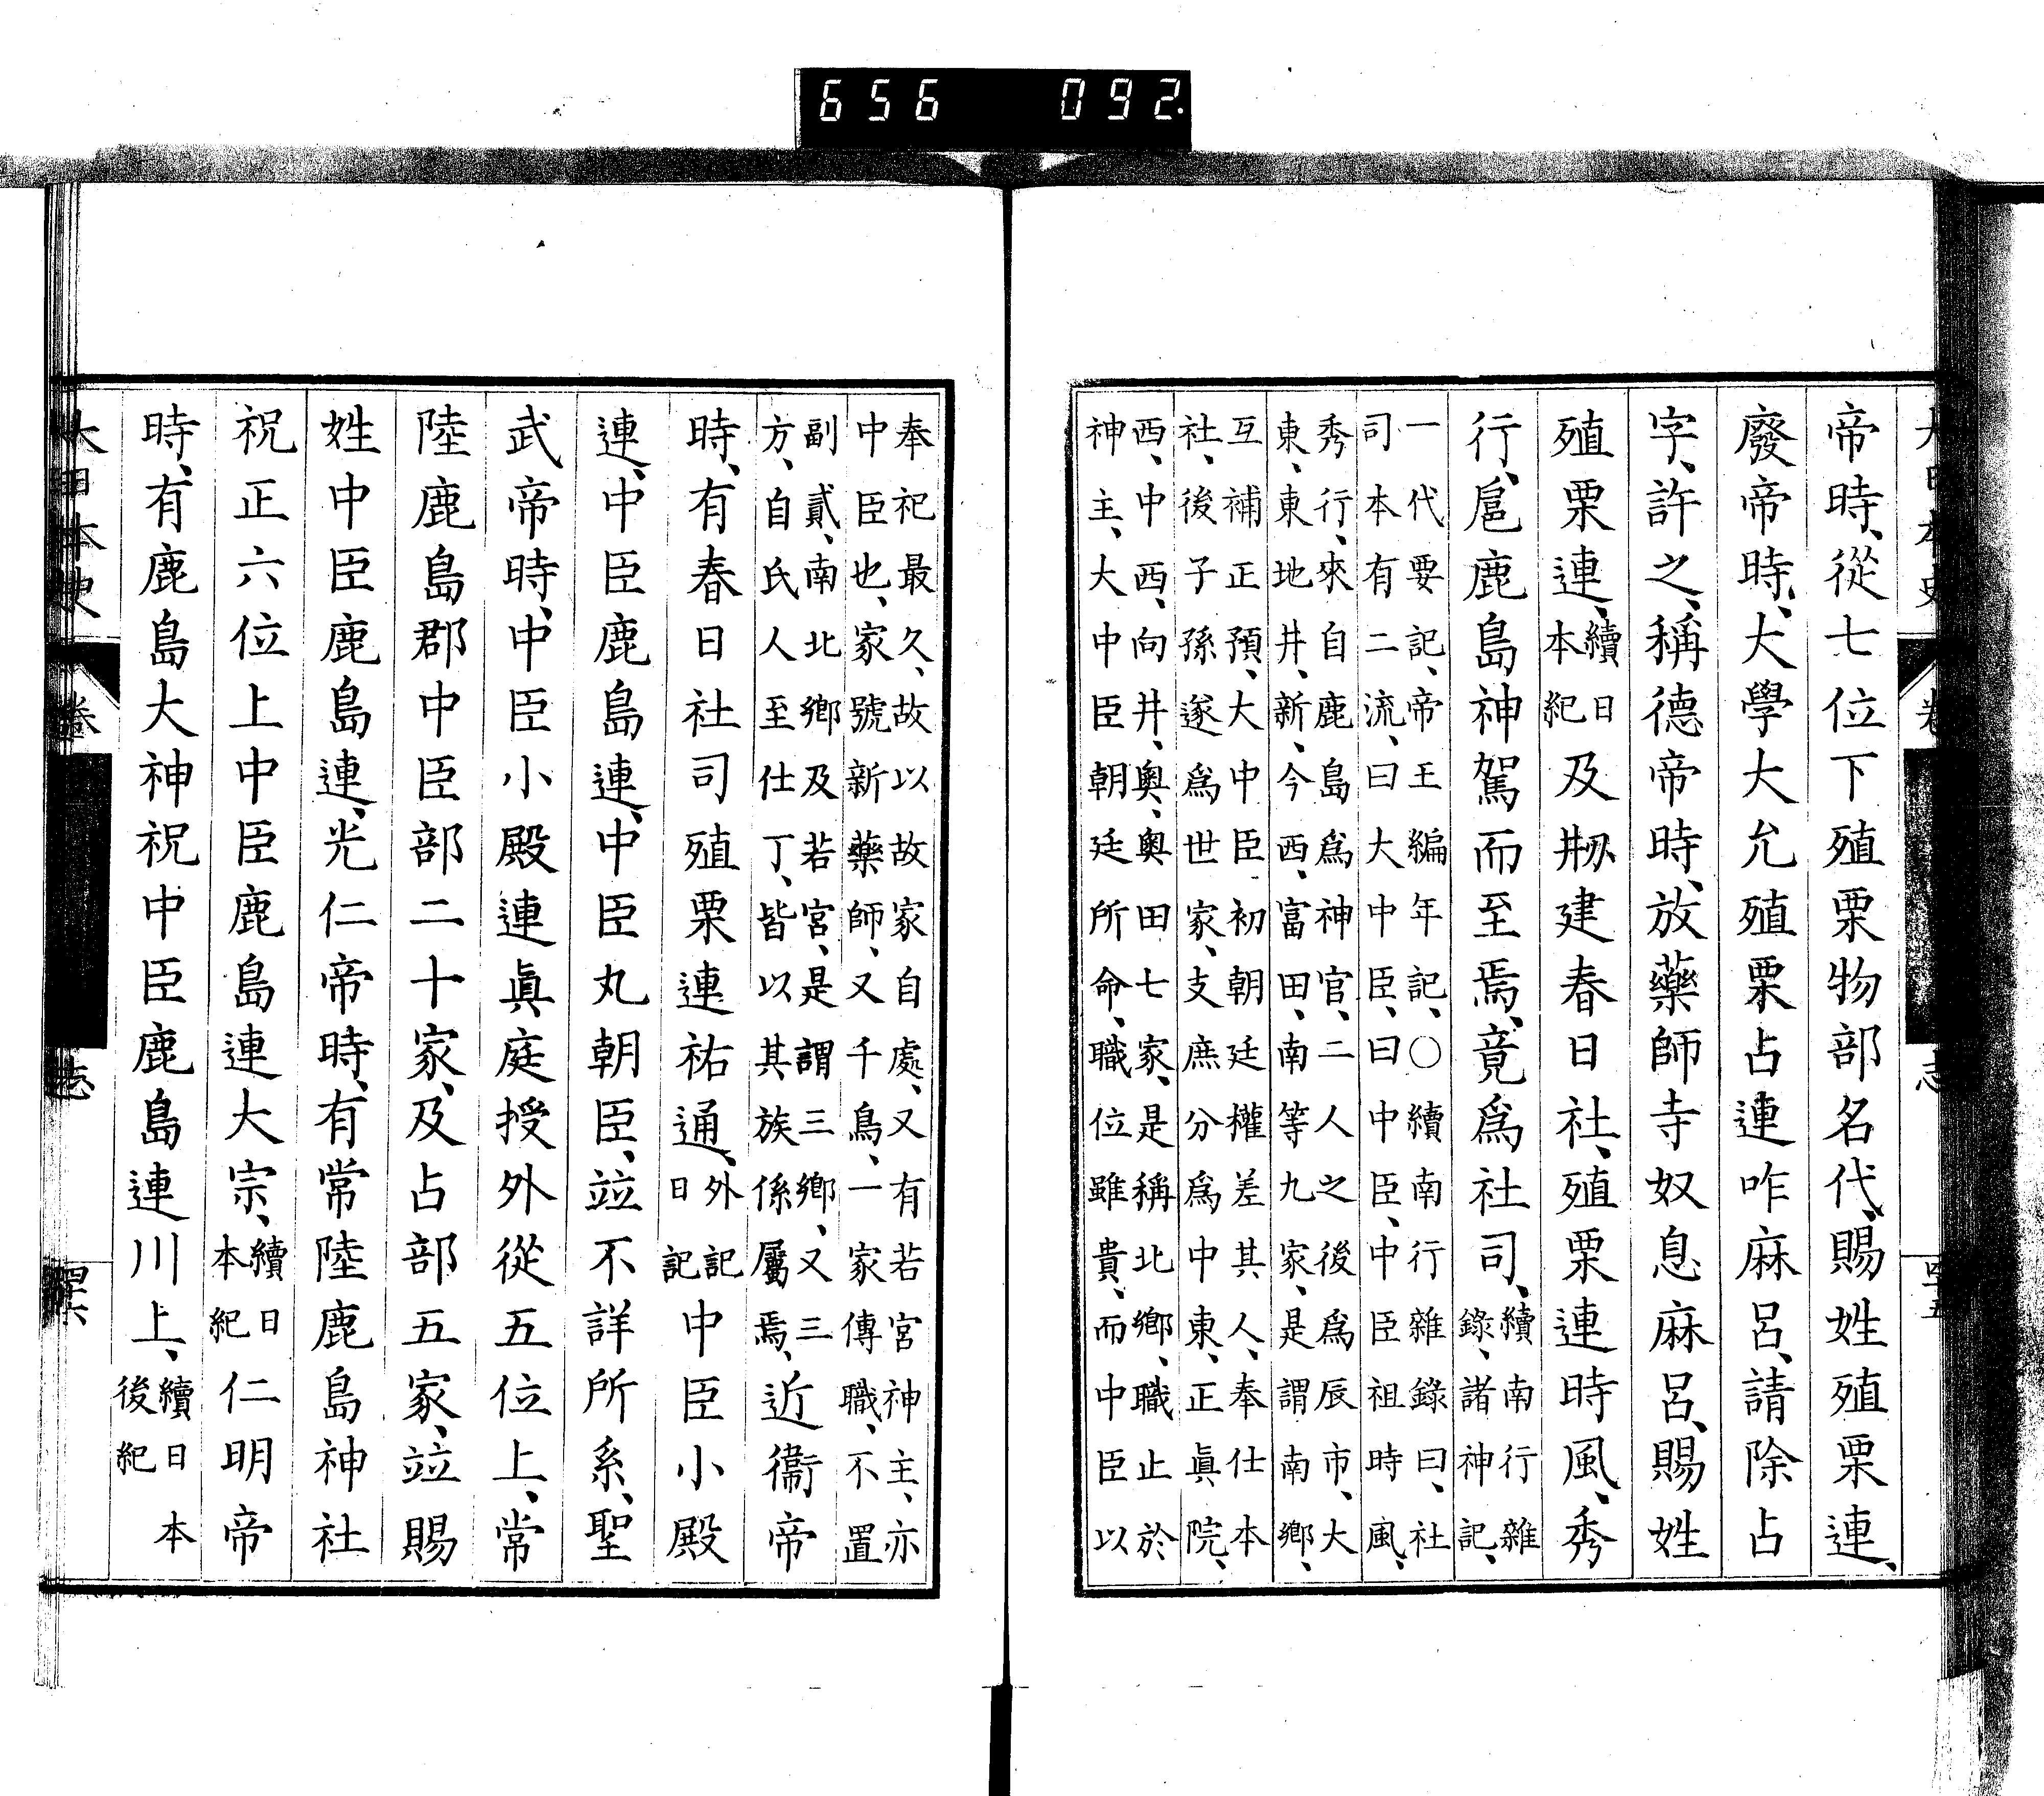 656 092.
大日本史 卷 志
帝時、從七位下殖栗物部名代、賜姓殖栗連、
廢帝時、大學大允殖栗占連咋麻呂、請除占
字、許之、稱德帝時、放藥師寺奴息麻呂、賜姓
殖栗連、續日本紀及剏建春日社、殖栗連時風、秀
行、扈鹿島神駕而至焉、竟爲社司、續南行雜錄、諸神記、
一代要記、帝王編年記、○續南行雜錄曰、社
司本有二流、曰大中臣、曰中臣、中臣祖時風、
秀行、來自鹿島爲神官、二人之後爲辰市、大
東、東地井、新、今西、富田、南等九家、是謂南鄉、
互補正預、大中臣初朝廷權差其人、奉仕本
社、後子孫遂爲世家、支庶分爲中東、正眞院、
西、中西、向井、奧、奧田七家、是稱北鄉、職止於
神主、大中臣朝廷所命、職位雖貴、而中臣以
奉祀最久、故以故家自處、又有若宮神主、亦
中臣也、家號新藥師、又千鳥、一家傳職、不置
副貳、南北鄉及若宮、是謂三鄉、又三
方、自氏人至仕丁、皆以其族係屬焉、近衞帝
時、有春日社司殖栗連祐通、外記日記中臣小殿
連、中臣鹿島連、中臣丸朝臣、竝不詳所系、聖
武帝時、中臣小殿連眞庭授外從五位上、常
陸鹿島郡中臣部二十家、及占部五家、竝賜
姓中臣鹿島連、光仁帝時、有常陸鹿島神社
祝正六位上中臣鹿島連大宗、續日本紀仁明帝
時、有鹿島大神祝中臣鹿島連川上、續日本後紀
大日本史 卷 志 四十六